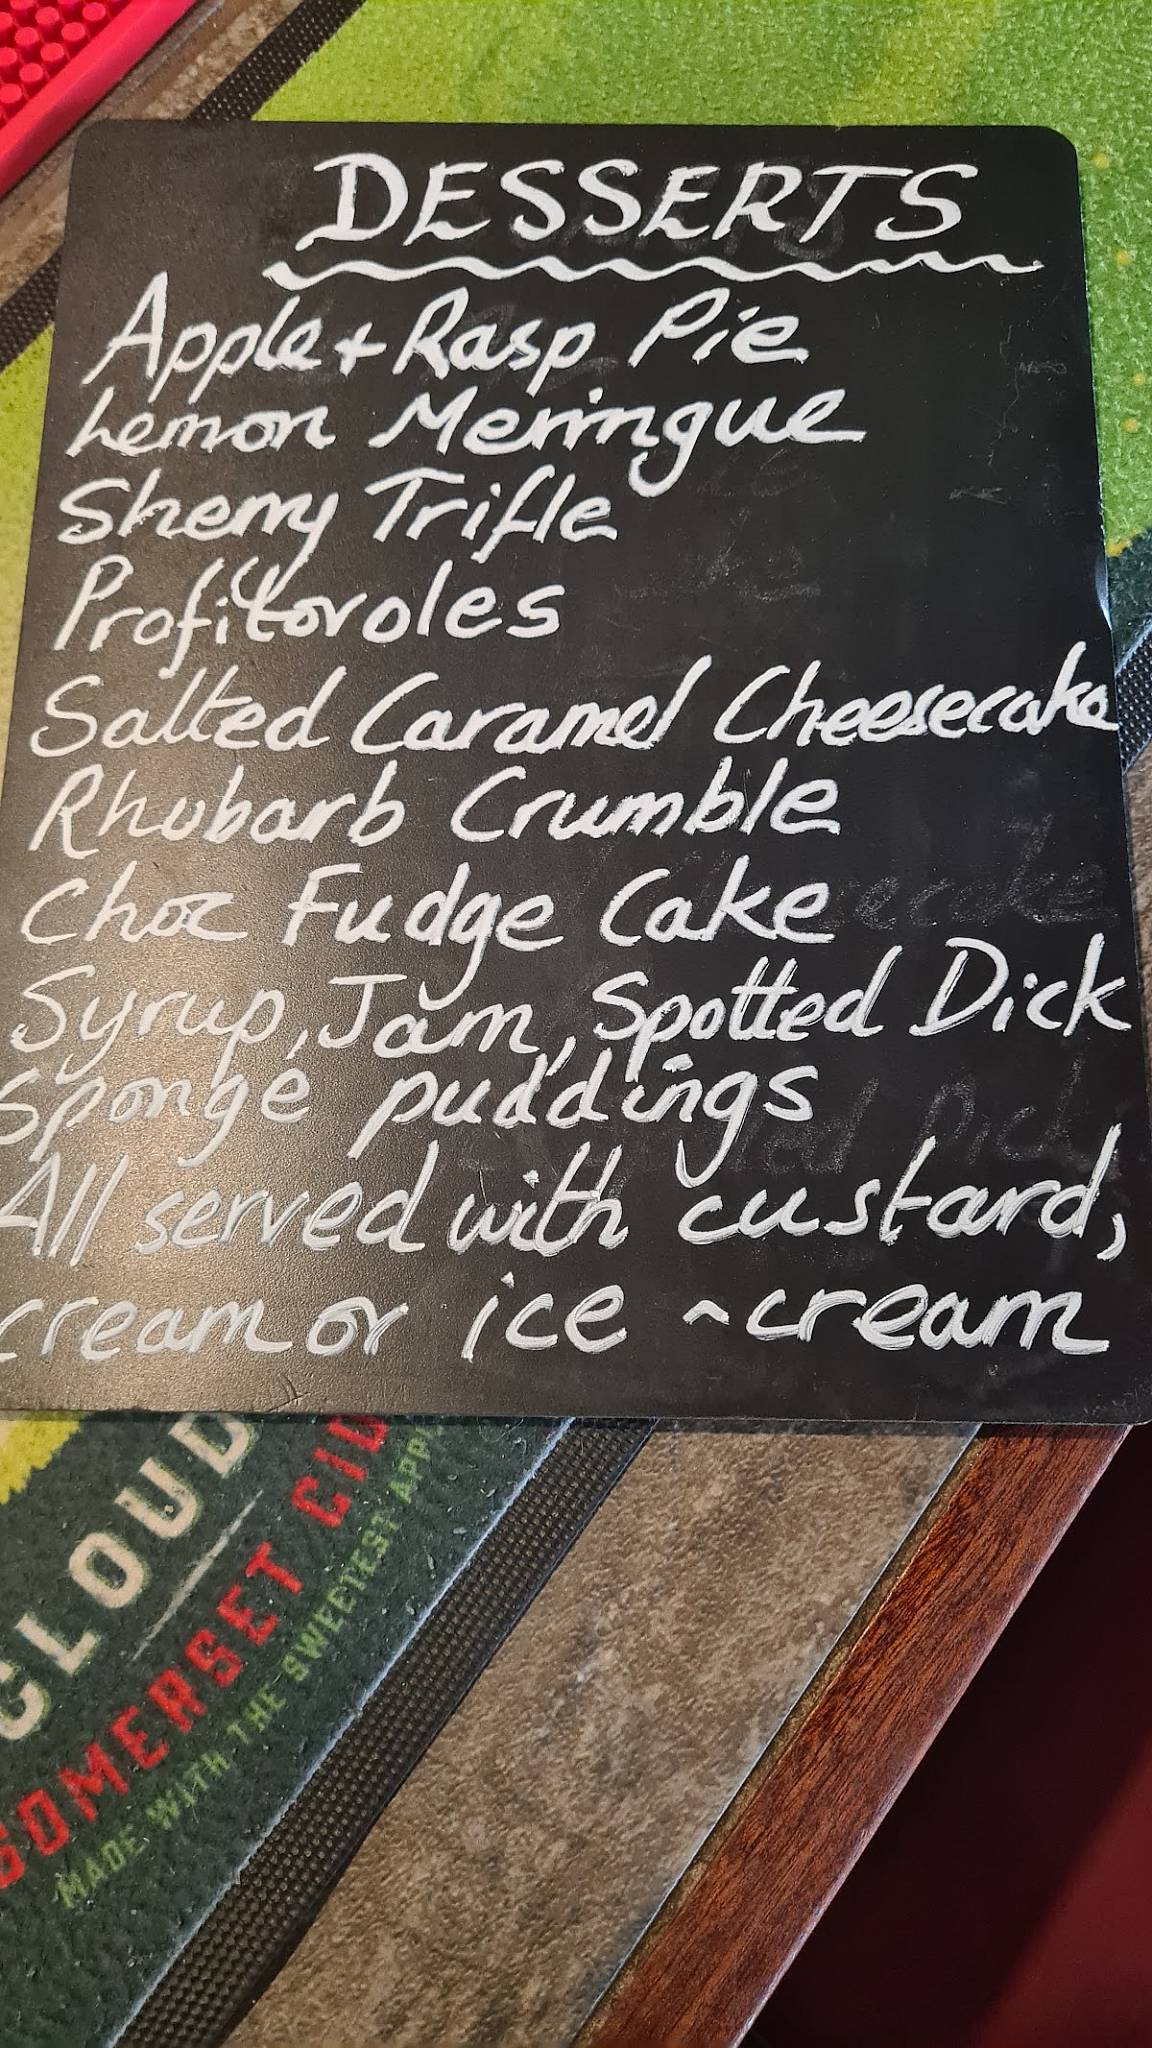 DESSERTS
Apple + Rasp Pie
Lemon Meringue
Sherry Trifle
Profitoroles
Salted Caramel Cheesecake
Rhubarb Crumble
Choc Fudge Cake
Syrup, Jam, Spotted Dick
Sponge puddings
All served with custard,
cream or ice-cream
CLOUD
SOMERSET CID
MADE WITH THE SWEETEST APP